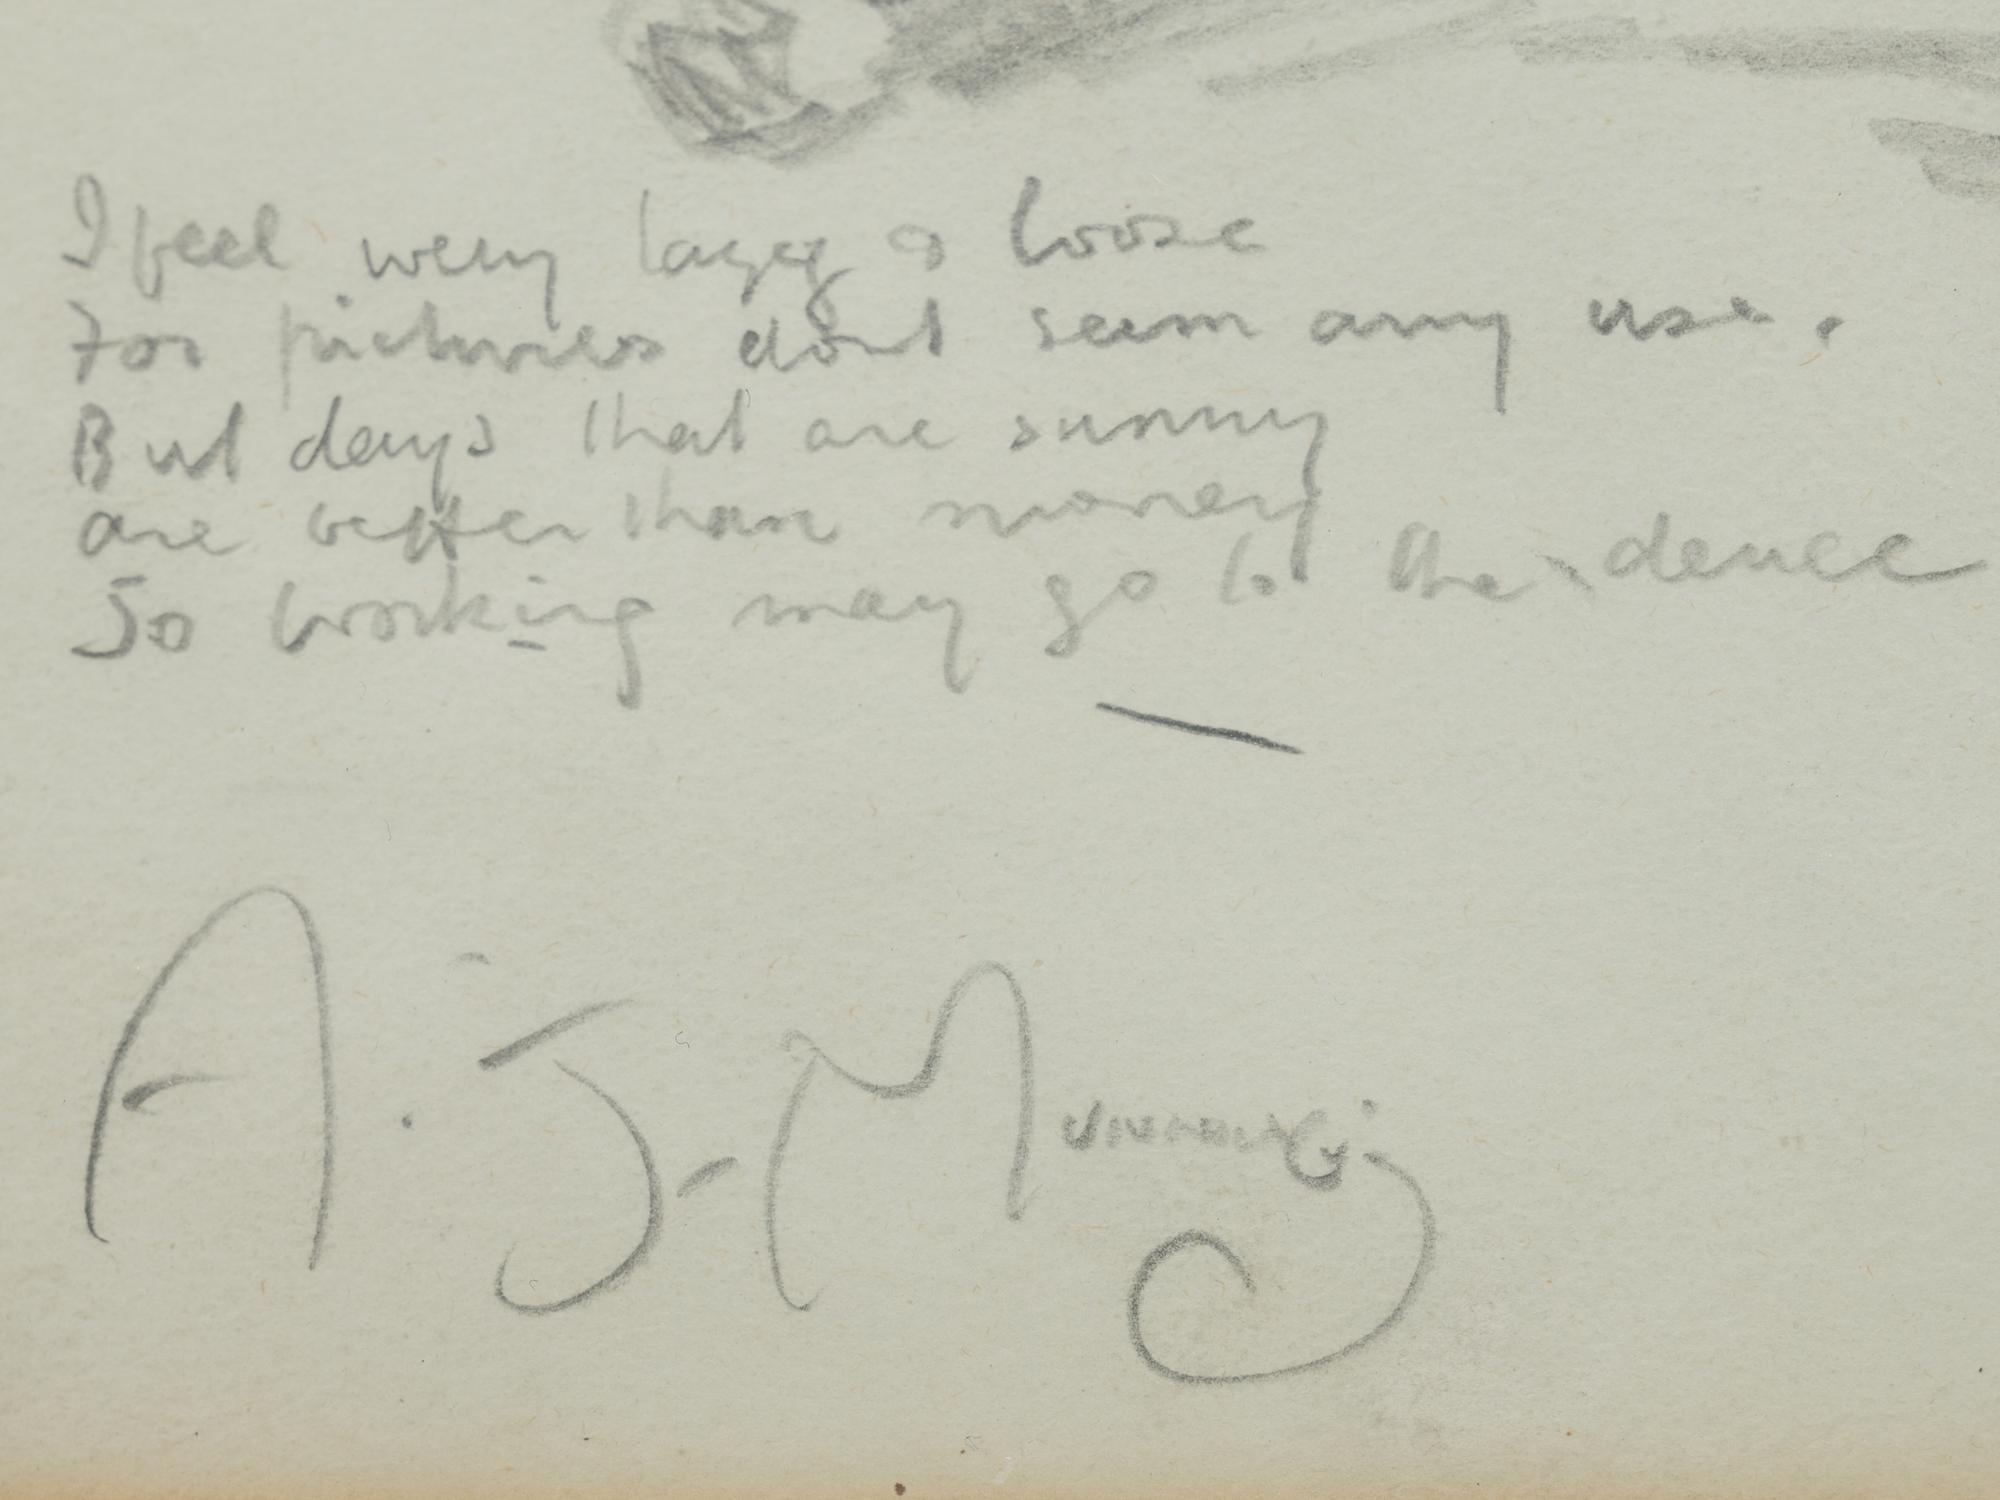 I feel very lazy & loose
For pictures dont seem any use.
But days that are sunny
are better than money
So working may go to the deuce
A. J. Munnings